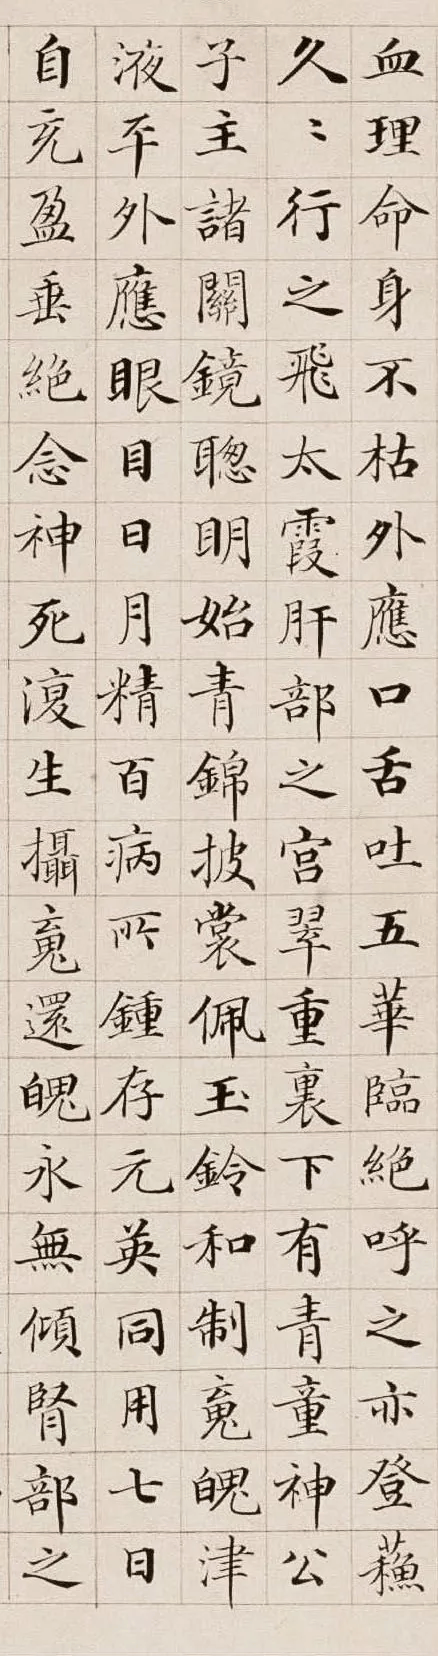 血理命身不枯外應口舌吐五華臨絕呼之亦登蘓
久〻行之飛太霞肝部之宮翠重裏下有青童神公
子主諸關鏡聦明始青錦披裳佩玉鈴和制䰟魄津
液平外應眼目日月精百病所鍾存元英同用七日
自充盈垂絕念神死復生攝䰟還魄永無傾腎部之